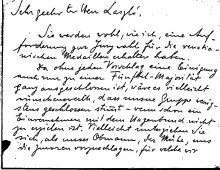 Sehr geehrter Herr László,
Sie werden wohl, wie ich, eine Auf-
forderung zur Jurywahl für die
Medaillen erhalten haben.
Da ohne jeden Vorschlag eine Einigung
auch nur zu einer Fünftel-Majorität
ganz ausgeschlossen ist, wäre es vielleicht
wünschenswerth, dass unsere Gruppe wenig-
stens geschlossen stimmt, wenn schon ein
Einvernehmen mit dem Hagenbund nicht
zu erzielen ist. Vielleicht unterziehen Sie
sich, als unser Obmann, der Mühe, uns
die Juroren vorzuschlagen, für welche wir